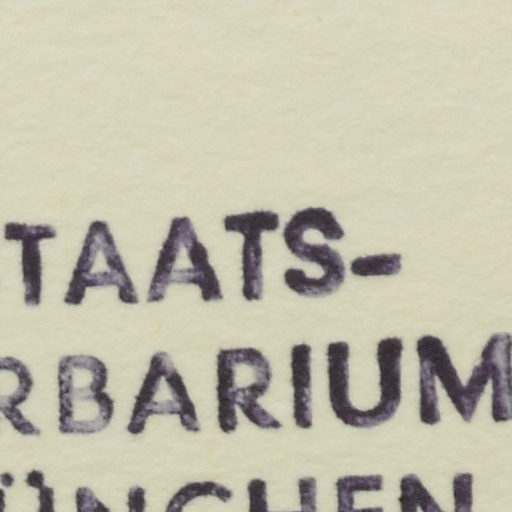 TAATS-
RBARIUM
ÜNCHEN